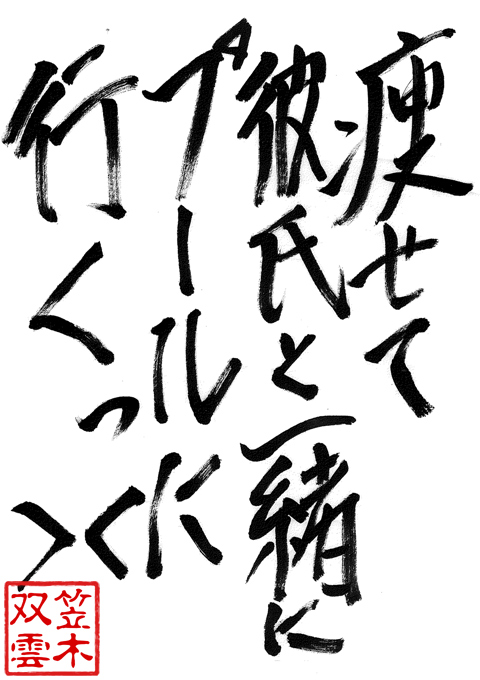 痩せて
彼氏と一緒に
プールに
行くっ
>く
笠木
双雲